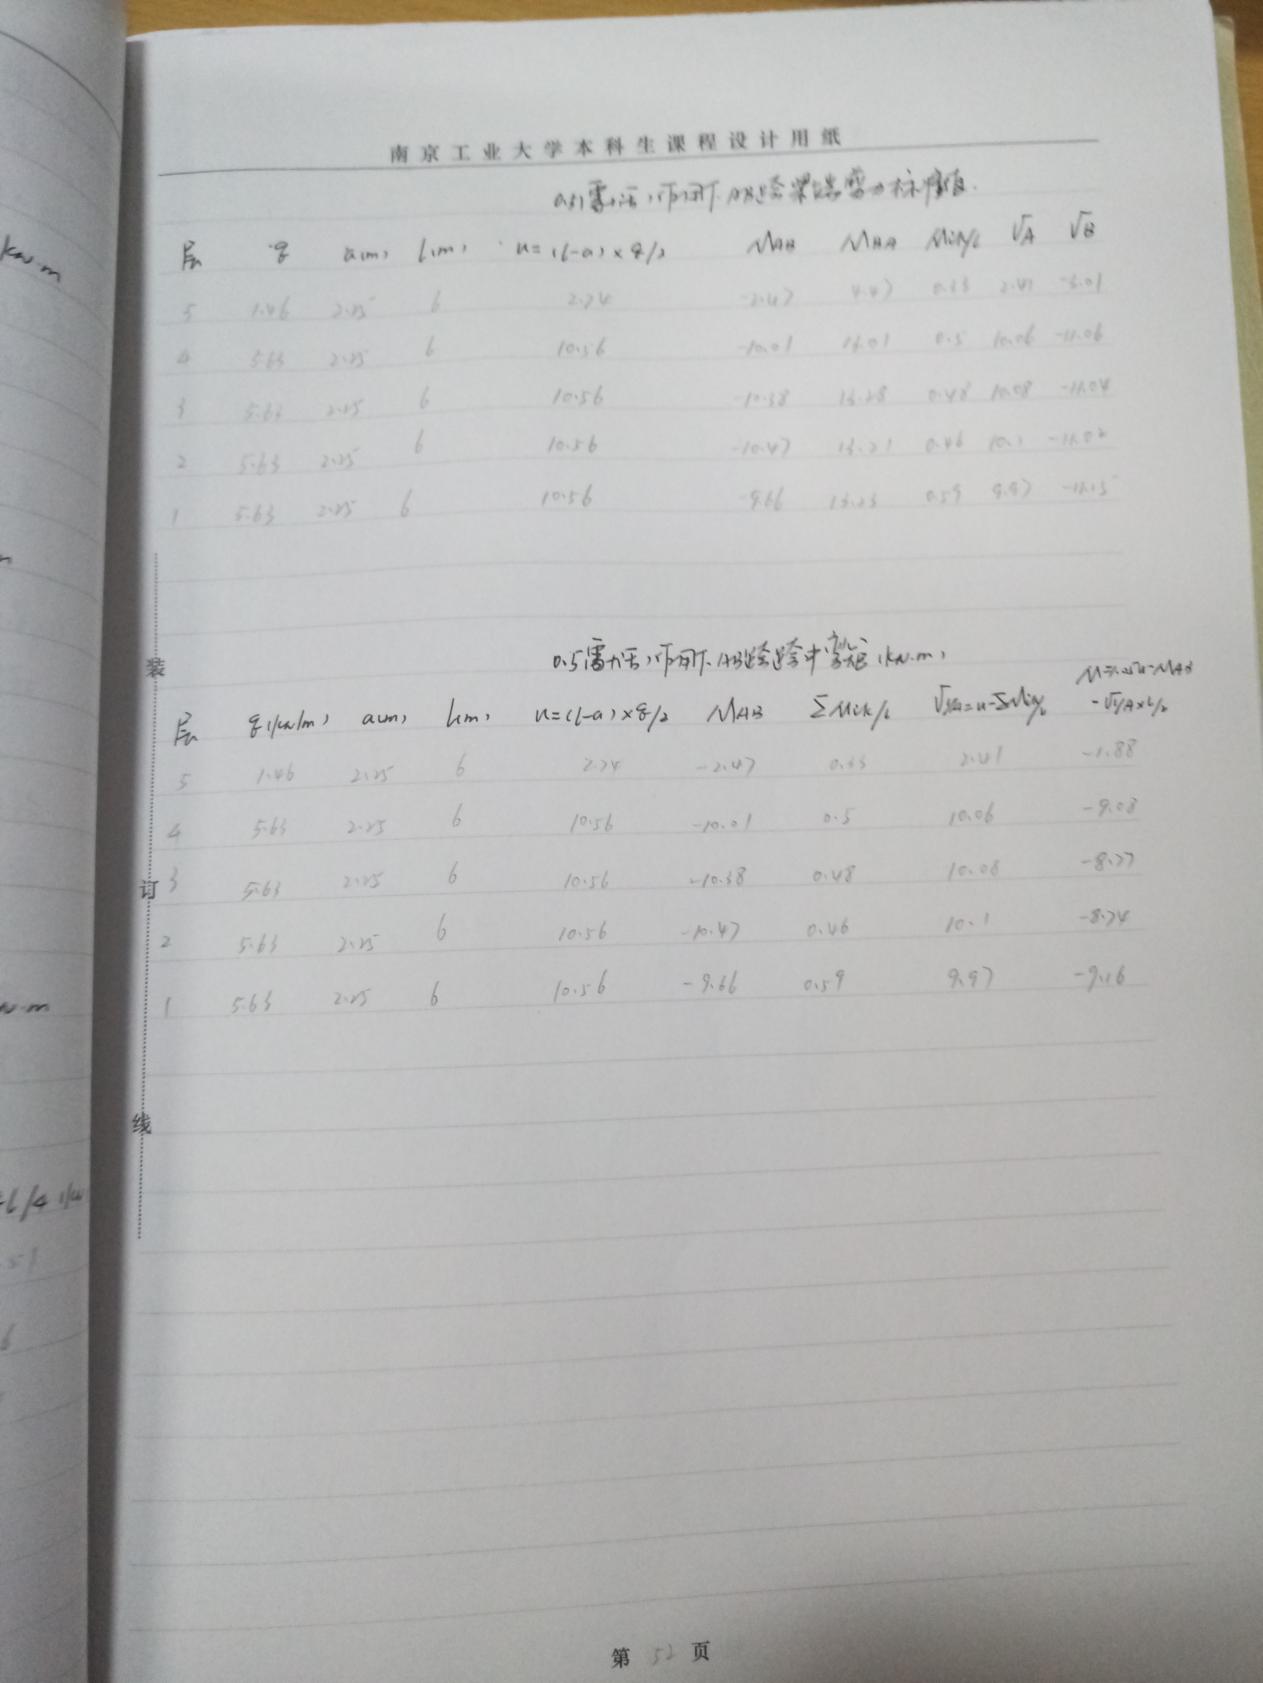 南京工业大学本科生课程设计用纸
层 q a(m) l(m) u=(l-a)×q/2 MAB MBA ΣMik/L VA VB
5 1.46 2.25 6 2.74 -2.47 4.47 0.33 2.41 -3.01
4 5.63 2.25 6 10.56 -10.01 13.01 0.5 10.06 -11.06
3 5.63 2.25 6 10.56 -10.38 13.28 0.48 10.08 -11.04
2 5.63 2.25 6 10.56 -10.47 13.21 0.46 10.1 -11.02
1 5.63 2.25 6 10.56 -9.66 13.23 0.59 9.97 -11.15
0.5雪+活)作用下AB跨跨中弯矩(kN.m)
层 q(kN/m) a(m) l(m) u=(l-a)×q/2 MAB ΣMik/L V1/A=u-ΣMik/L
-V1/A×L/2
5 1.46 2.25 6 2.74 -2.47 0.33 2.41 -1.88
4 5.63 2.25 6 10.56 -10.01 0.5 10.06 -9.08
3 5.63 2.25 6 10.56 -10.38 0.48 10.08 -8.77
2 5.63 2.25 6 10.56 -10.47 0.46 10.1 -8.74
1 5.63 2.25 6 10.56 -9.66 0.59 9.97 -9.16
装
订
线
第 52 页
kN.m